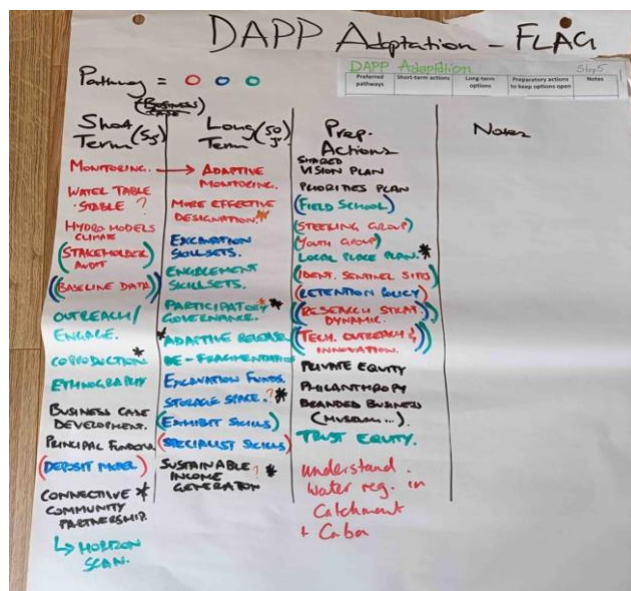 DAPP Adptation - FLAG
Pathway =
(Business case)
DAPP Adaptation
Step 5
Preferred pathways
Short-term actions
Long-term options
Preparatory actions to keep options open
Notes
Short Term (5y)
MONITORING. →
WATER TABLE
STABLE ?
HYDRO MODELS
CLIMATE
(STAKEHOLDER
AUDIT
((BASELINE DATA))
OUTREACH/
ENGAGE.
COPRODUCTION *
ETHNOGRAPHY
BUSINESS CASE
DEVELOPMENT.
PRINCIPAL FUNDERS
(DEPOSIT MODEL)
CONNECTIVE *
COMMUNITY
PARTNERSHIP.
↳ HORIZON
SCAN.
Long Term (50 y)
ADAPTIVE
MONITORING.
MORE EFFECTIVE
DESIGNATION. *
EXCAVATION
SKILLSETS.
ENGAGEMENT
SKILLSETS.
PARTICIPATORY *
GOVERNANCE. *
* ADAPTIVE RELEASE
DE-FRAGMENTATION
EXCAVATION FUNDS.
STORAGE SPACE.? *
(EXHIBIT SKILLS)
(SPECIALIST SKILLS)
SUSTAINABLE ? *
INCOME
GENERATION
Prep.
Actions
SHARED
VISION PLAN
PRIORITIES PLAN
(FIELD SCHOOL)
(STEERING GROUP)
(YOUTH GROUP)
LOCAL PLACE PLAN. *
(IDENT. SENTINEL SITES)
(RETENTION POLICY)
((RESEARCH STRAT))
DYNAMIC.
((TECH. OUTREACH &
INNOVATION.
PRIVATE EQUITY
PHILANTHROPY
BRANDED BUSINESS
(MUSEUM...)
TRUST EQUITY.
understand.
Water reg. in
Catchment
Notes